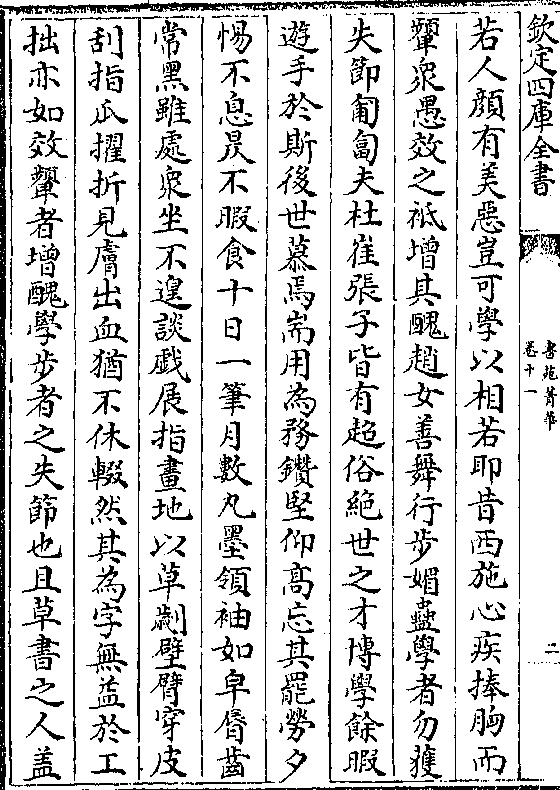 欽定四庫全書
書苑菁華
卷十一
二
若人顔有美惡豈可學以相若耶昔西施心疾捧胸而
顰衆愚效之祇增其醜趙女善舞行步媚蠱學者勿獲
失節匍匐夫杜崔張子皆有超俗絶世之才博學餘暇
遊手於斯後世慕焉耑用為務鑽堅仰髙忘其罷勞夕
惕不息昃不暇食十日一筆月數丸墨領袖如皁脣齒
常黑雖處衆坐不遑談戲展指畫地以草劌壁臂穿皮
刮指爪擢折見膚出血猶不休輟然其為字無益於工
拙亦如效顰者增醜學步者之失節也且草書之人盖